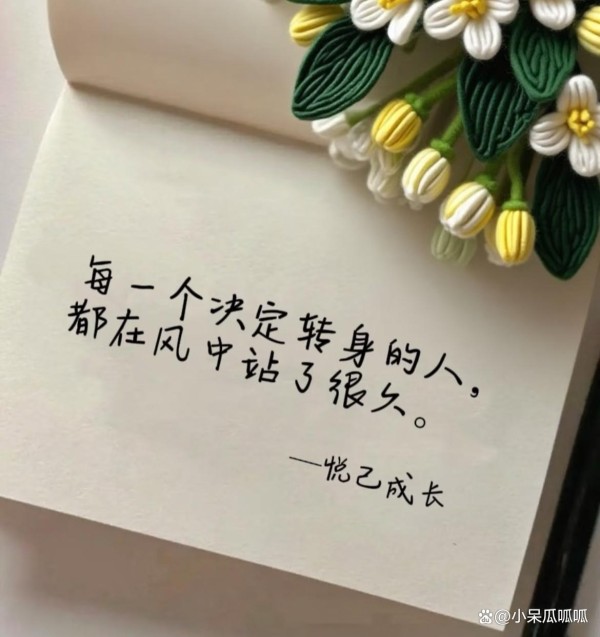 每一个决定转身的人，
都在风中站了很久。
——悦己成长
@小呆瓜呱呱